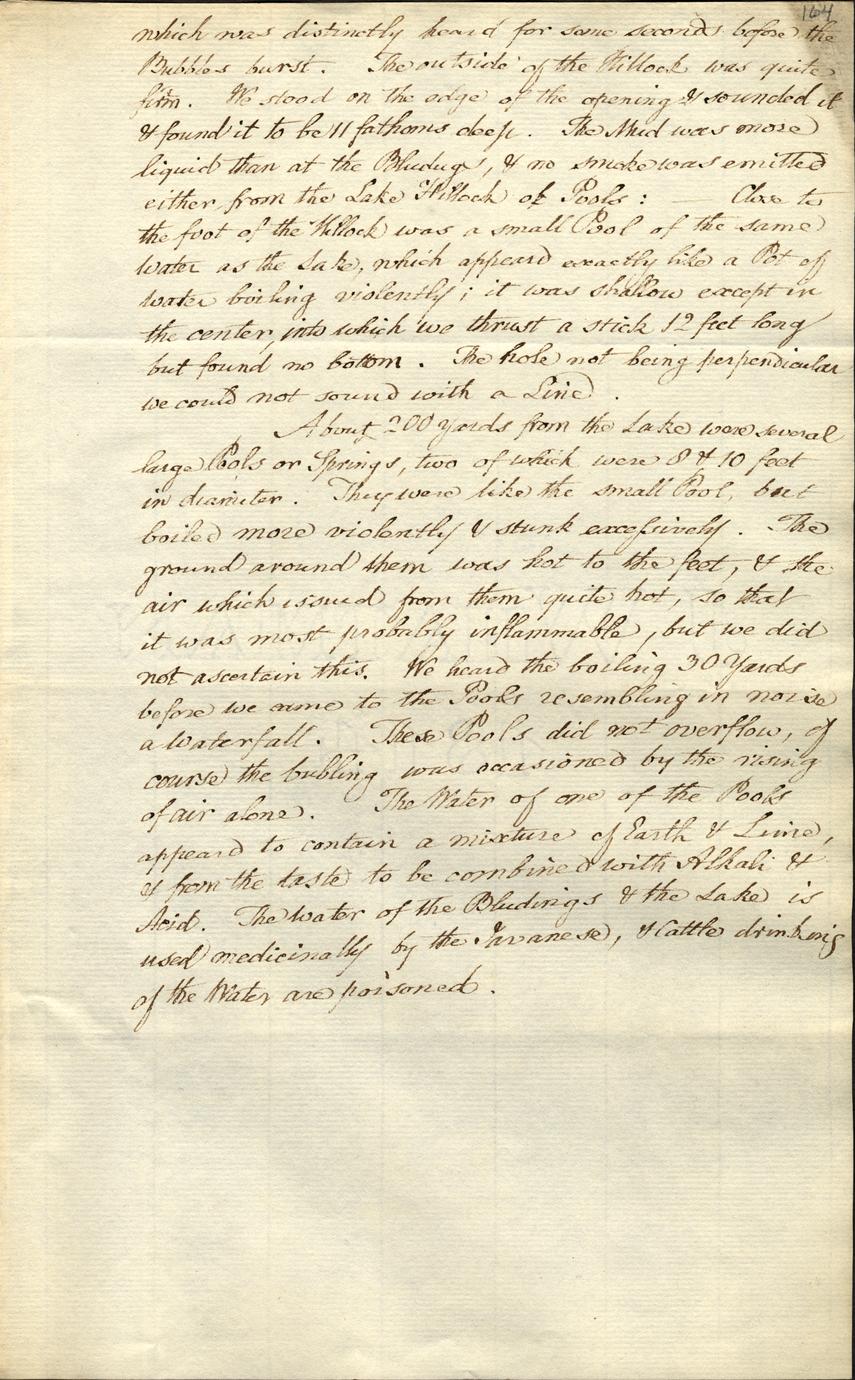 164
which was distinctly heard for some seconds before the
Bubbles burst. The outside of the Hillock was quite
firm. We stood on the edge of the opening & sounded it
& found it to be 11 fathoms deep. The Mud was more
liquid than at the Bludugs, & no smoke was emitted
either from the Lake Hillock of Pools: — Close to
the foot of the Hillock was a small Pool of the same
Water as the Lake, which appeard exactly like a Pot of
Water boiling violently; it was shallow except in
the center, into which we thrust a stick 12 feet long
but found no bottom. The hole not being perpendicular
we could not sound with a Line.
About 200 yards from the Lake were several
large Pools or Springs, two of which were 8 & 10 feet
in diameter. They were like the small Pool, but
boiled more violently & stunk excessively. The
ground around them was hot to the feet, & the
air which issued from them quite hot, so that
it was most probably inflammable, but we did
not ascertain this. We heard the boiling 30 Yards
before we came to the Pools resembling in noise
a Waterfall. These Pools did not overflow, of
course the bubling was occasioned by the rising
of air alone. The Water of one of the Pools
appeard to contain a mixture of Earth & Lime,
& from the taste to be combined with Alkali &
Acid. The Water of the Bludings & the Lake is
used medicinally by the Javanese, & Cattle drinking
of the Water are poisoned.